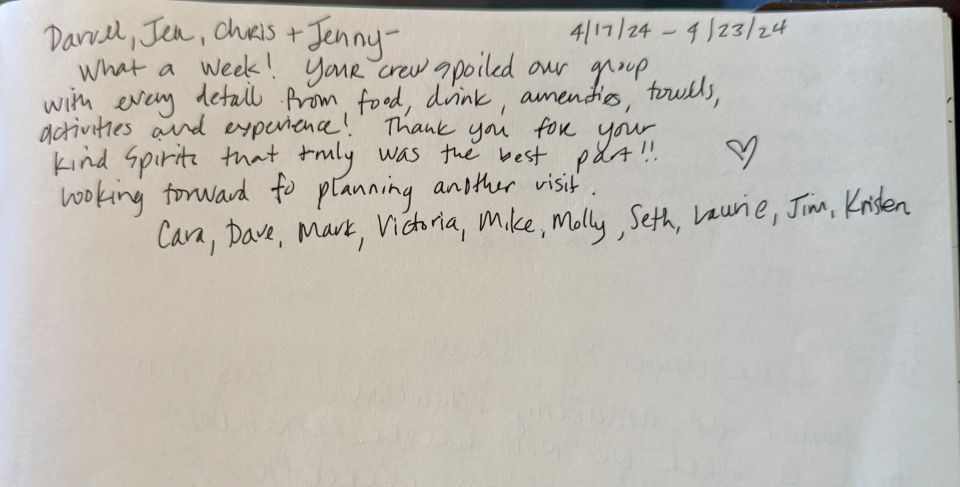 Darrell, Jen, Chris + Jenny- 4/17/24 - 4/23/24
What a week! Your crew spoiled our group
with every detail from food, drink, amenities, towells,
activities and experience! Thank you for your
kind spirits that truly was the best part!! ♡
Looking forward to planning another visit.
Cara, Dave, Mark, Victoria, Mike, Molly, Seth, Laurie, Jim, Kristen